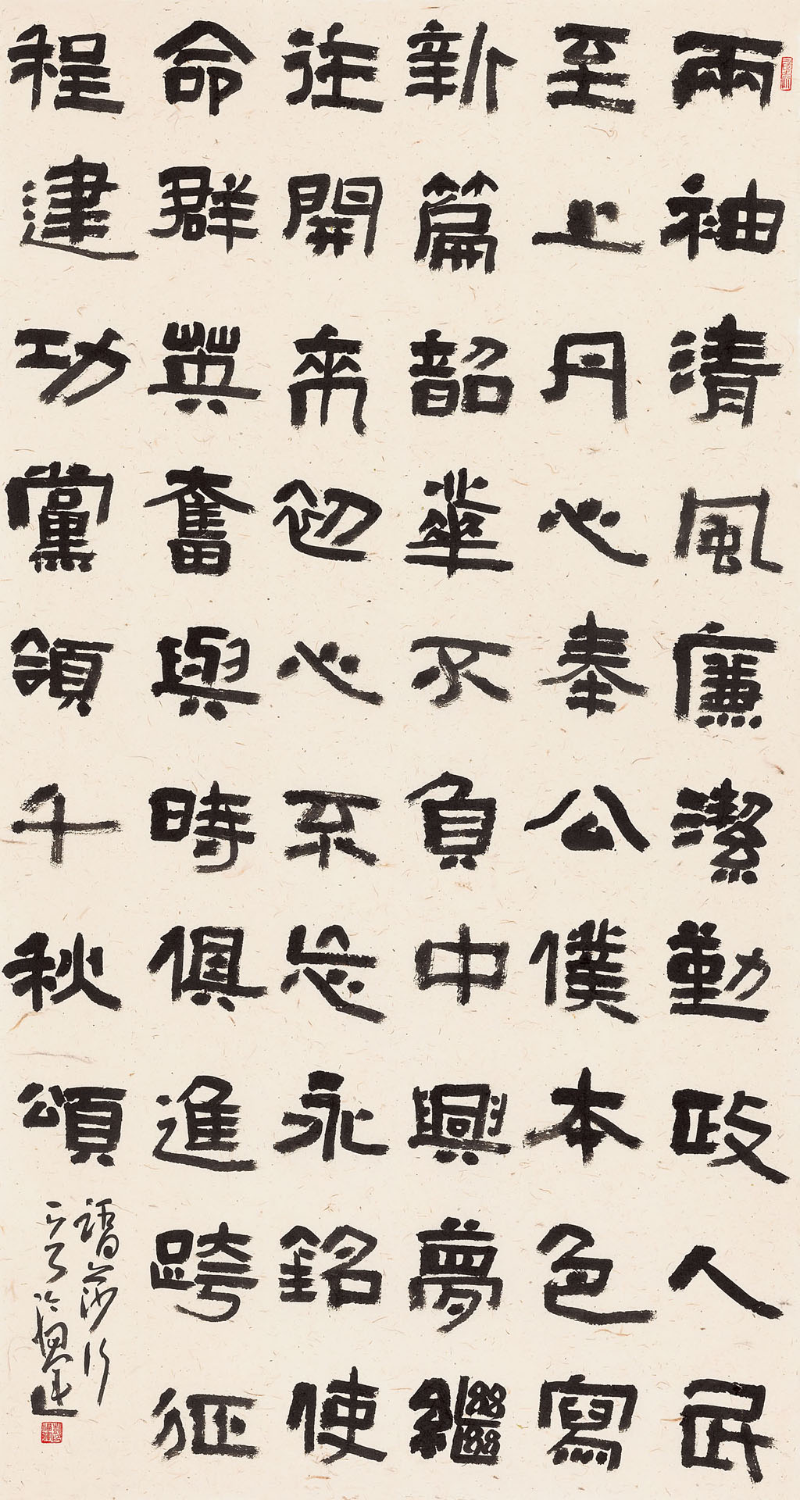 兩袖清風廉潔勤政人民
至上丹心奉公僕本色寫
新篇韶華不負中興夢繼
往開來初心不忘永銘使
命群英奮興時俱進跨征
程建功黨領千秋頌
踏莎行